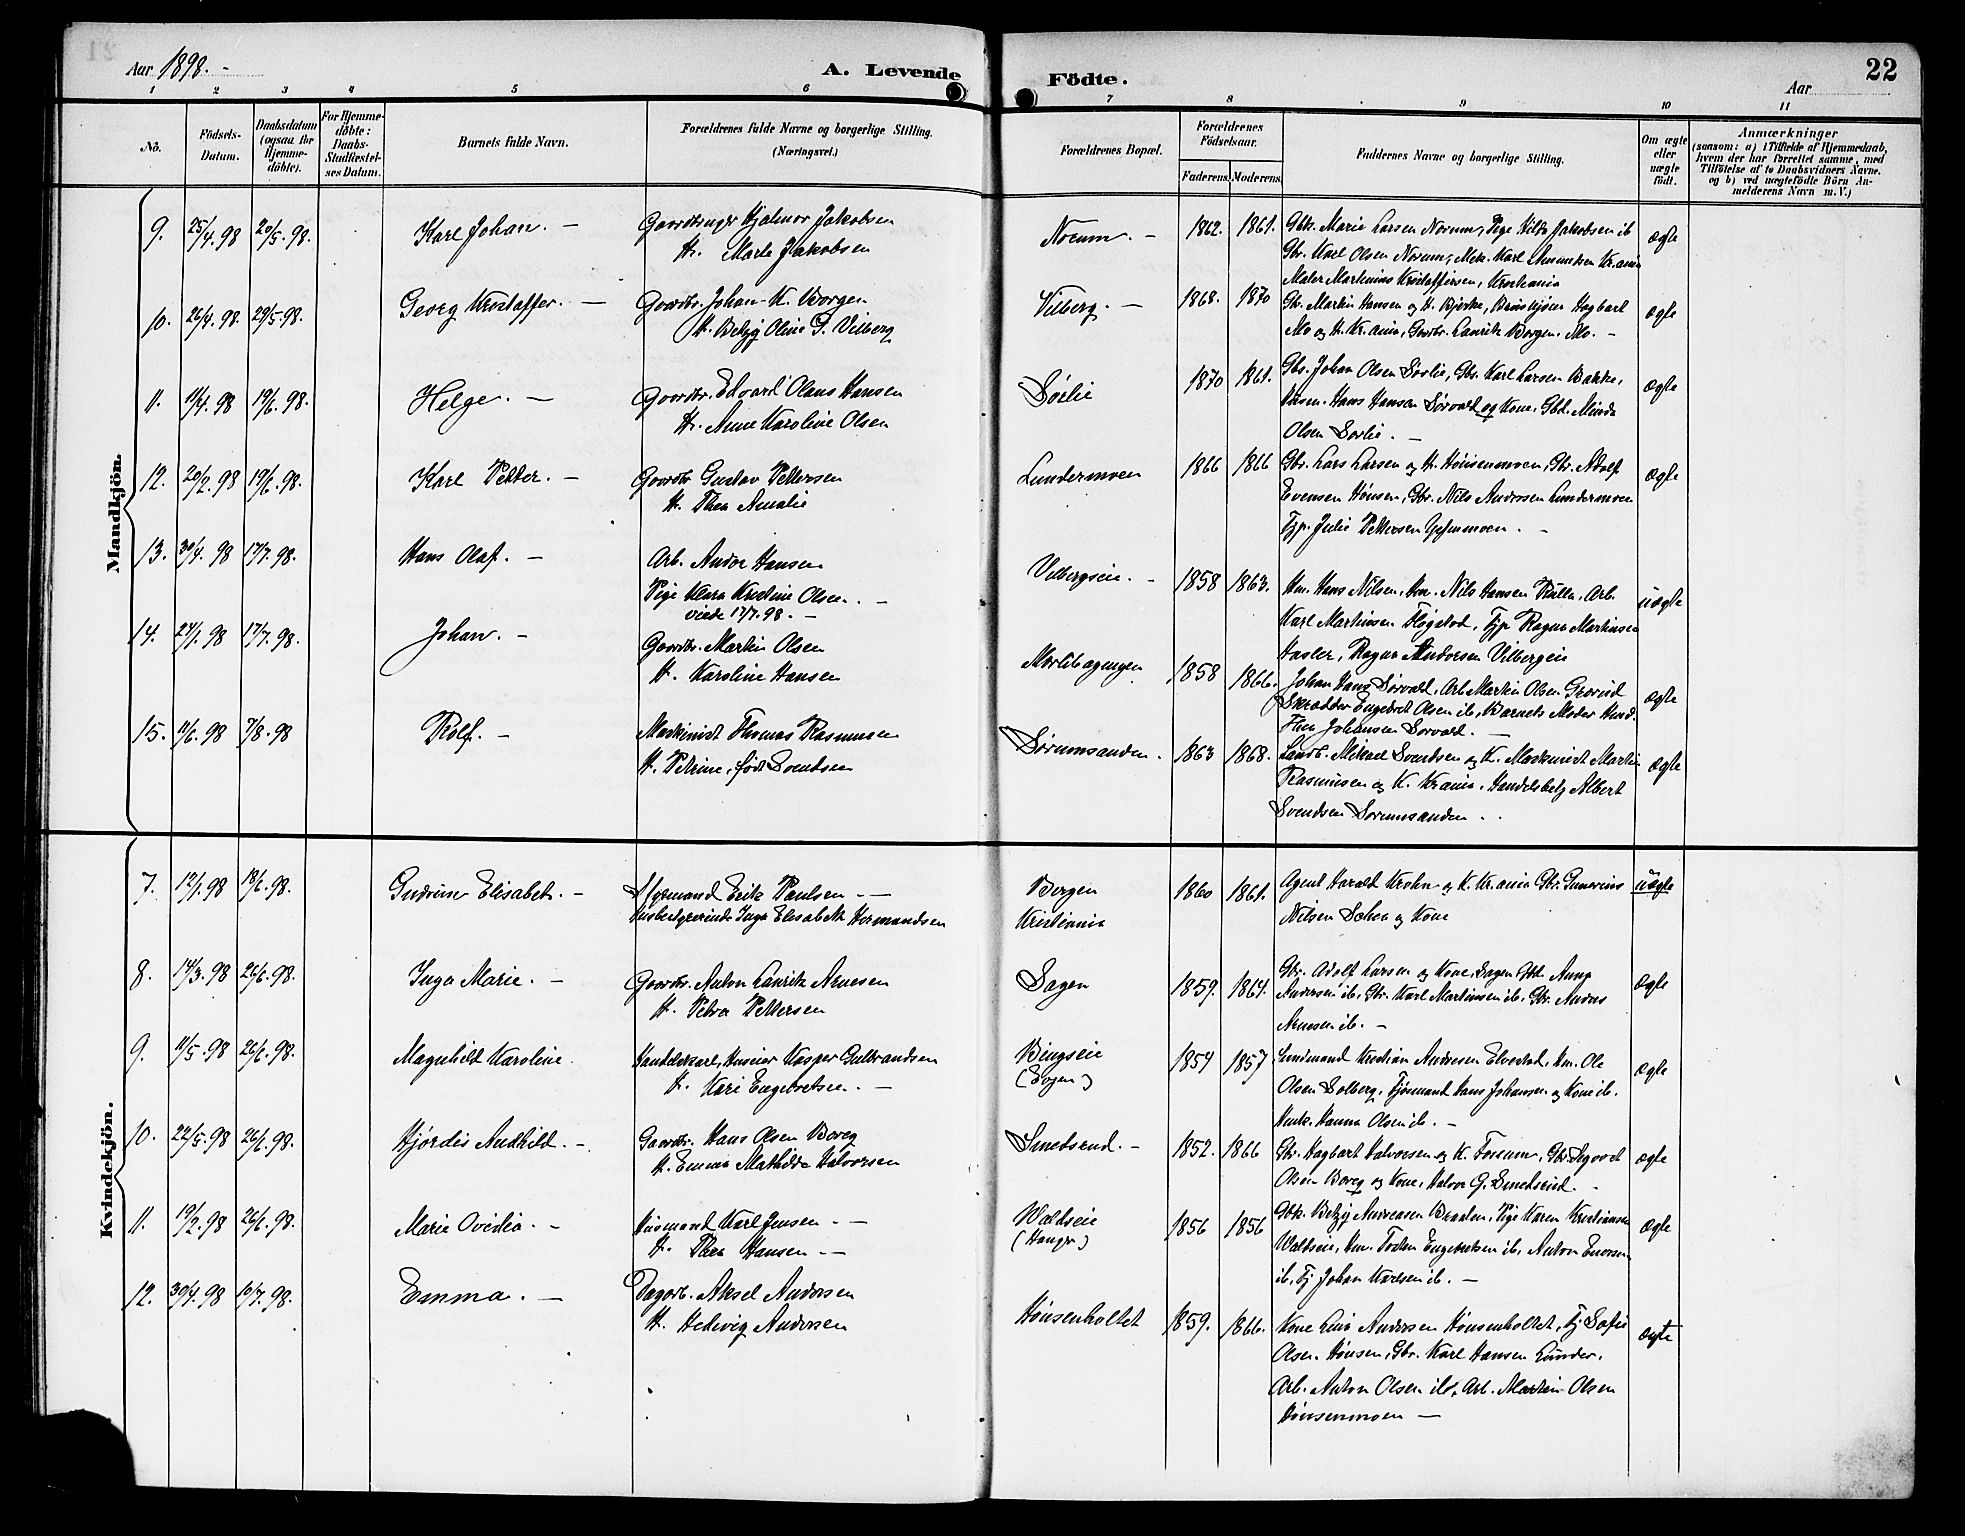 Aar 1898. -
A. Levende
Födte.
Aar
22
1 2 3 4 5 6 7 8 9 10 11
No.
Födsels-
Datum.
Daabsdatum
(ogsaa for
Hjemme-
döbte).
For Hjemme-
döbte:
Daabs-
Stadfæstel-
ses Datum.
Barnets fulde Navn.
Forældrenes fulde Navne og borgerlige Stilling.
(Næringsvei.)
Forældrenes Bopæl.
Forældrenes
Födselsaar.
Faderens. Moderens.
Faddernes Navne og borgerlige Stilling.
Om ægte
eller
uægte
födt.
Anmærkninger
(saasom: a) i Tilfælde af Hjemmedaab,
hvem der har forrettet samme, med
Tilföielse af to Daabsvidners Navne.
og b) ved uægtefödte Börn An-
melderens Navn m. V.)
Mandkjön.
9. 25/4.98 20/5.98. Karl Johan. -
Gaardbruger Hjalmar Jakobsen
H. Marte Jakobsen
Norum. - 1862. 1861.
Gbk. Marie Larsen Norum, Pige Hilda Jakobsen ib
Gbr. Karl Olsen Norum, Mek. Karl Amundsen Kr.ania
Maler Martinius Kristoffersen, Kristiania
ægte
10. 26/4.98 29/5.98. Georg Kristoffer. -
Gaardbr. Johan K. Borgen
H. Betzy Oline G. Vilberg
Vilberg. - 1868. 1870
Gbr. Martin Hansen og H. Bjerke, Hagbart
Mo og H. Kr.ania, Gaardbr. Laurits Borgen, Mo. -
ægte
11. 11/4.98 19/6.98. Helge. -
Gaardbr. Edvard Olaus Hansen
H. Anne Karoline Olsen
Sörlie 1870 1861.
Gbr. Johan Olsen Sörlie, Gbr. Karl Larsen Bakke,
Hans Hansen Sörvald og Kone, Gbd. Minda
Olsen Sorlie. -
ægte
12. 20/2.98 19/6.98. Karl Petter. -
Gaardbr Gustav Pettersen
H. Thea Amalie
Lundermoen 1866 1866
Gbr. Lars Larsen og H. Hönsenmoen, Gbr. Adolf
Evensen Hönsen, Gbr. Nils Andersen Lundermoen
Tjp. Julie Pettersen
ægte
13. 30/4.98 17/7.98. Hans Olaf. -
Arb. Andor Hansen
Pige Klara Kristine Olsen. -
viede 17/7.98. -
Vilbergseie. - 1858 1863.
Hm. Hans Nilsen, Hm. Nils Hansen Kulla, Arb.
Karl Martinsen Flögstad, Tjp Ragna Martinsen
Hasler, Ragna Andersen Vilbergeie
uægte
14. 27/1.98 17/7.98. Johan. -
Gaardbr. Martin Olsen
H. Karoline Hansen
1858 1866.
Johan Hans Sörvald, Arb Martin Olsen
Skrædder Engebret Olsen ib, Barnets Moder
Thea Johansen Sorvald. -
ægte
15. 11/6.98 7/8.98 Rolf. -
Maskinist Thomas Rasmusen
H. Petrine, født Svendsen
Sörumsanden. 1863 1868.
Landb. Mikael Svendsen og K. Maskinist Martin
Rasmusen og K. Kr.ania, Handelsbetj Albert
Svendsen Sörumsanden.
ægte
Kvindekjön.
7. 12/1.98 18/6.98. Gudrun Elisabet. -
Styrmand Erik Paulsen. -
Husbestyrerinde Inga Elisabeth Hermandsen
Bergen
Kristiania
1860 1861.
Agent Harald Krohn og K. Kr.ania Gbr. Gunerius
Nilsen og Kone
uægte
8. 14/3.98 26/6.98. Inga Marie. -
Gaardbr. Anton Laurits Arnesen
H. Petra Pettersen
Sagen 1859. 1864.
Gbr. Adolf Larsen og Kone, Sagen, Gbd. Anna
Andersen ib, Gbr. Karl Martinsen ib, Gbr. Anders
Arnesen ib. -
ægte
9. 11/5.98 26/6.98. Magnhild Karoline.
Handelskarl, Huseier Kasper Gulbrandsen
H. Kari Engebretsen. -
Bingseie
1854 1857
Kristian Andresen Elvestad, Hm. Ole
Olsen Solberg, Hans Johansen og Kone ib.
Hanna Olsen ib. -
ægte
10. 22/5.98 26/6.98. Hjördis Andhild. -
Gaardbr. Hans Olsen Boreg
H. Emma Mathilde Halvorsen
Smedsrud. - 1852. 1866
Gbr. Hagbart Halvorsen og K. Fossum, Gbr.
Olsen Boreg og Kone, Halvor G. Smedsrud. -
ægte
11. 19/2.98 26/6.98. Marie Ovidia. -
Husmand Karl Jensen. -
H. Thea Hansen. -
Waldseie
1856 1856
Gbk. Betzy Andreasen Braaten, Pige Karen Kristiansen
Waldseie, Hm. Engebretsen ib, Anton
ib, Tj Johan Karlsen ib. -
ægte
12. 30/4.98 10/7.98. Emma. -
Dagarb. Aksel Andersen
H. Hedevig Andersen
Hönsenholtet 1859. 1866.
Kone Lina Andersen Hönsenholtet, Tj Sofie
Olsen Hönsen, Gbr. Karl Hansen Lunder.
Arb. Anton Olsen ib, Arb. Martin Olsen
Hönsenmoen -
ægte